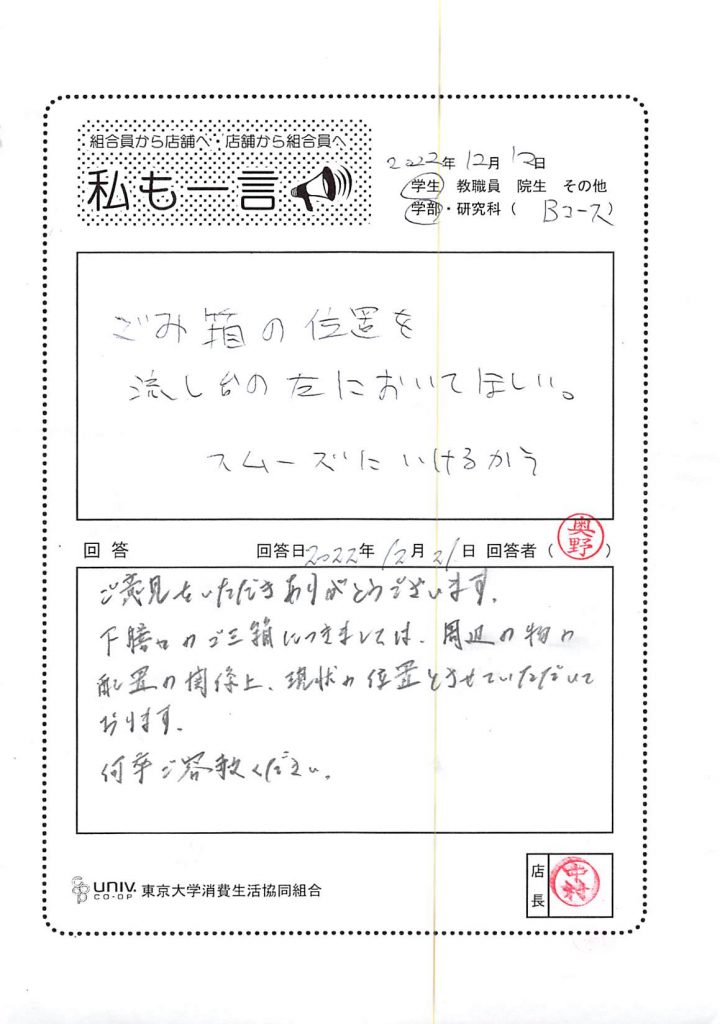 組合員から店舗へ・店舗から組合員へ
私も一言
2022年12月12日
学生 教職員 院生 その他
学部・研究科( Bコース)
ごみ箱の位置を
流し台の左においてほしい。
スムーズにいけるから
回答 回答日2022年12月21日 回答者(奥野)
ご意見をいただきありがとうございます。
下膳口のゴミ箱につきましては、周辺の物の
配置の関係上、現状の位置とさせていただいて
おります。
何卒ご容赦ください。
UNIV. CO-OP 東京大学消費生活協同組合
店長 中村